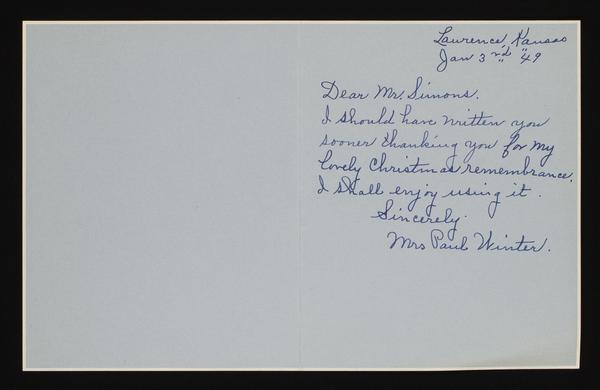 Lawrence, Kansas
Jan 3rd "49
Dear Mr. Simons.
I should have written you
sooner thanking you for my
lovely Christmas remembrance.
I shall enjoy using it.
Sincerely.
Mrs Paul Winter.